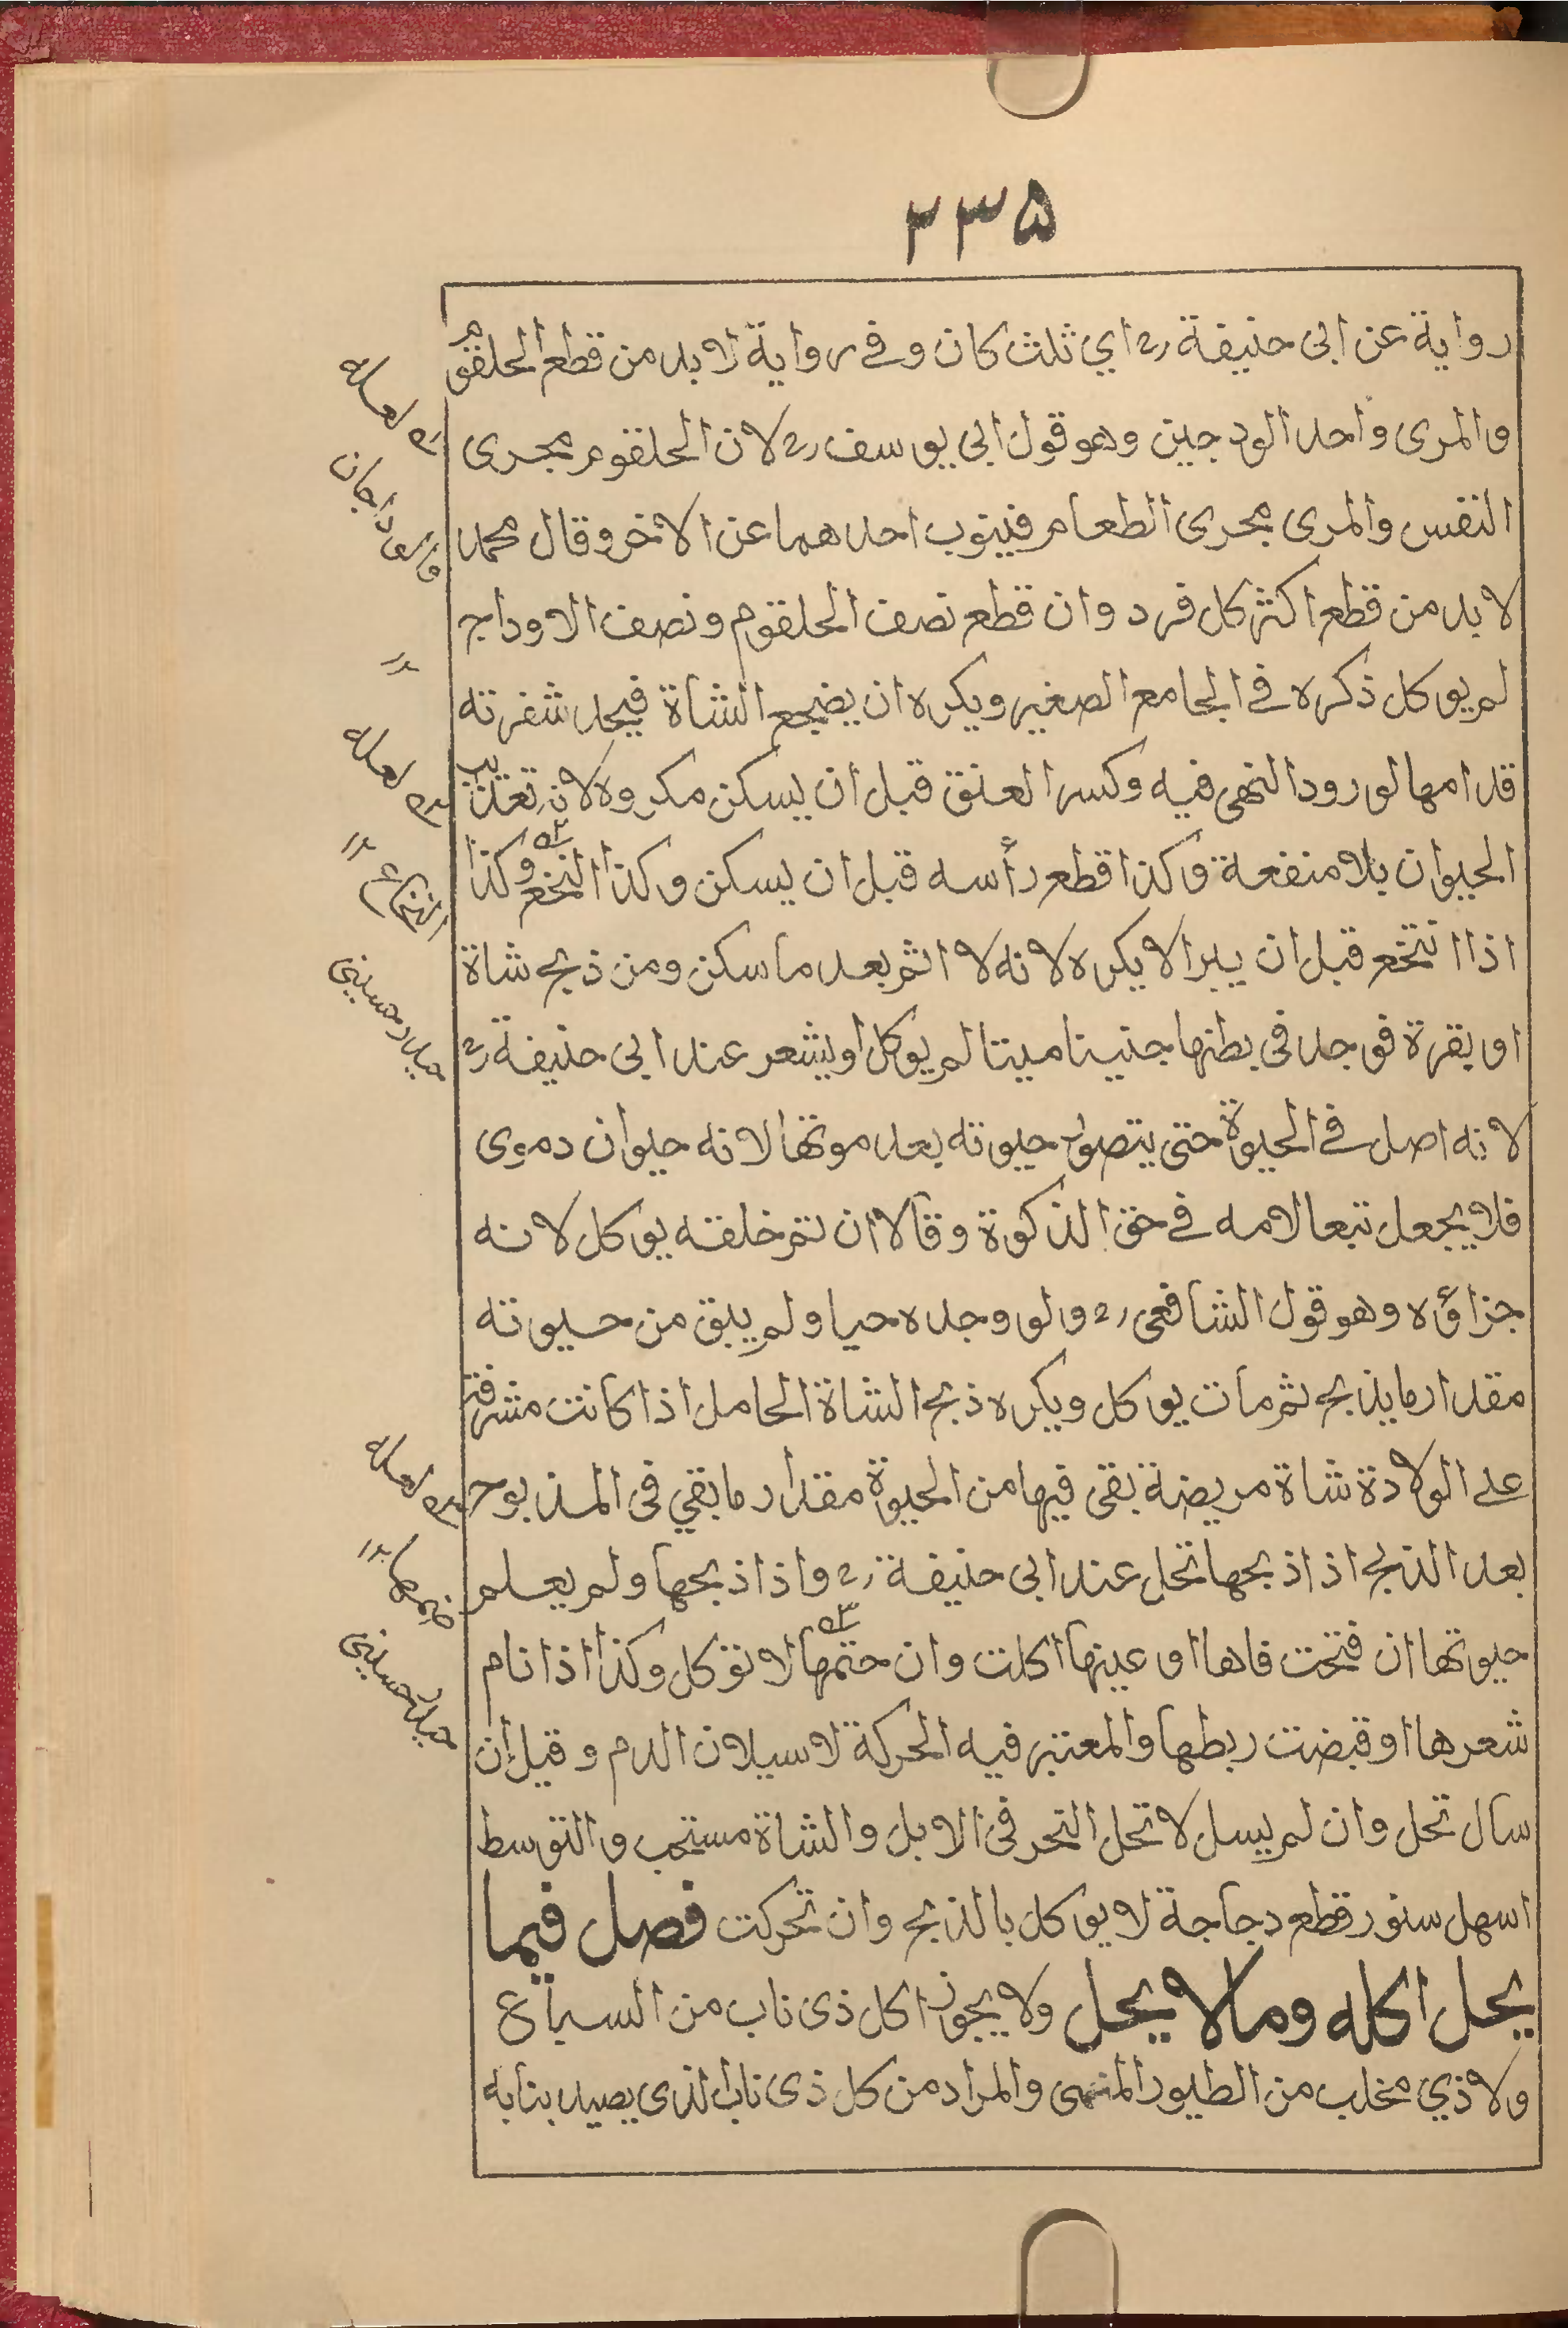 ۲۳۵
رواية عن ابى حنيفة رح اي ثلث كان وفي رواية لا بد من قطع الحلقوم
والمرى واحد الودجين وهو قول ابى يوسف رح لان الحلقوم مجرى
النفس والمرى مجرى الطعام فينوب احدهما عن الاخر وقال محمد
لا بد من قطع اكثر كل فرد وان قطع نصف الحلقوم ونصف الاوداج
لم يوكل ذكره في الجامع الصغير ويكره ان يضجع الشاة فيحد شفرته
قدامها لورود النهى فيه وكسر العنق قبل ان يسكن مكروه لانه تعذيب
الحيوان بلا منفعة وكذا قطع رأسه قبل ان يسكن وكذا النخع وكذا
اذا انتخع قبل ان يبرا لا يكره لانه لا اثم بعد ما سكن ومن ذبح شاة
او بقرة فوجد فى بطنها جنينا ميتا لم يوكل او يشعر عند ابى حنيفة رح
لانه اصل في الحيوة حتى يتصور حيوته بعد موتها لانه حيوان دموى
فلا يجعل تبعا لامه في حق الذكوة وقالا ان تم خلقته يوكل لانه
جزاؤه وهو قول الشافعى رح ولو وجده حيا ولم يبق من حيوته
مقدار ما يذبح ثم مات يوكل ويكره ذبح الشاة الحامل اذا كانت مشرفة
على الولادة شاة مريضة بقى فيها من الحيوة مقدار ما بقي فى المذبوح
بعد الذبح اذ اذبحها تحل عند ابى حنيفة رح واذا ذبحها ولم يعلم
حيوتها ان فتحت فاها او عينها اكلت وان ختمها لا توكل وكذا اذا نام
شعرها او قبضت ربطها والمعتبر فيه الحركة لا سيلان الدم وقيل ان
سال تحل وان لم يسل لا تحل النحر فى الابل والشاة مستحب والتوسط
اسهل سنور قطع دجاجة لا يوكل بالذبح وان تحركت فصل فيما
يحل اكله وما لا يحل ولا يجوز اكل ذى ناب من السباع
ولا ذي مخلب من الطيور المنهى والمراد من كل ذى ناب الذى يصيد بنابه
لعله
والودجان
۱۲
لعله
النخاع ۱۲
لعله
ضمها ۱۲